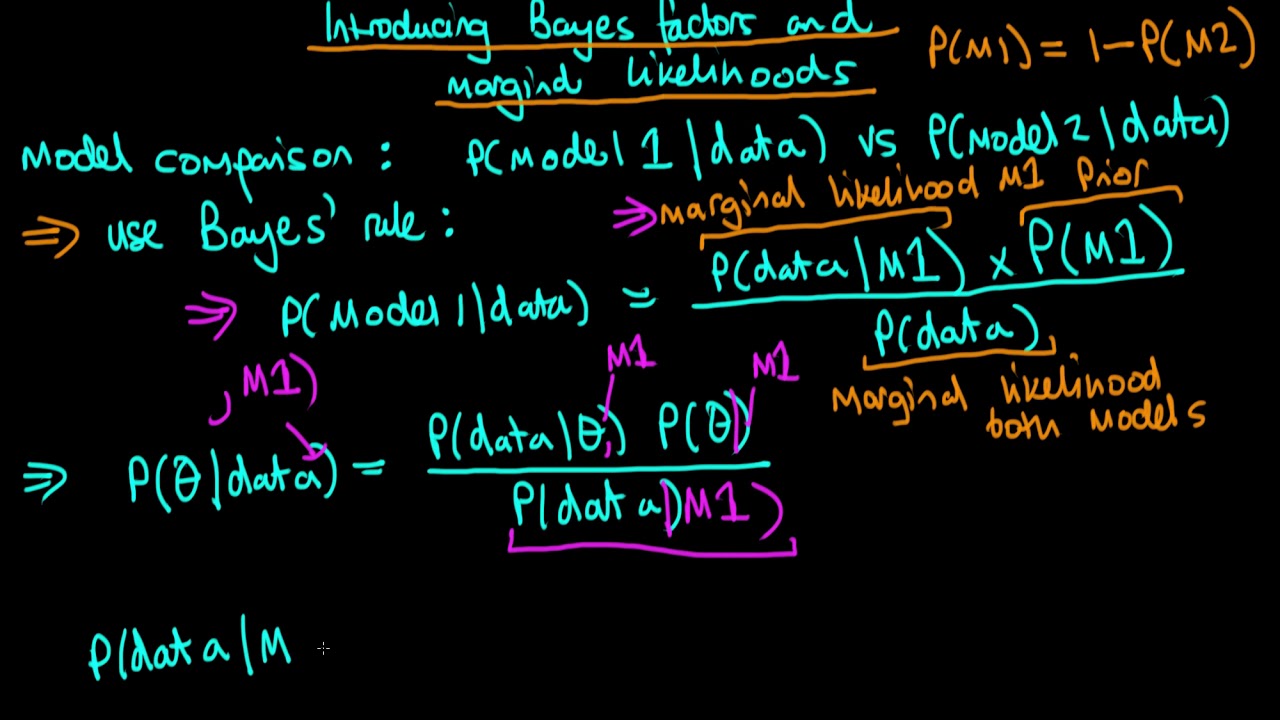 Introducing Bayes factors and
marginal likelihoods
P(M1) = 1 - P(M2)
Model comparison : P(Model 1 | data) vs P(Model 2 | data)
⇒ use Bayes' rule :
⇒ marginal likelihood M1 Prior
⇒ P(Model 1 | data) = P(data | M1) × P(M1)
P(data)
Marginal likelihood
both Models
, M1)
M1
M1
⇒ P(θ | data) = P(data | θ,) P(θ) |
P(data) | M1)
P(data | M